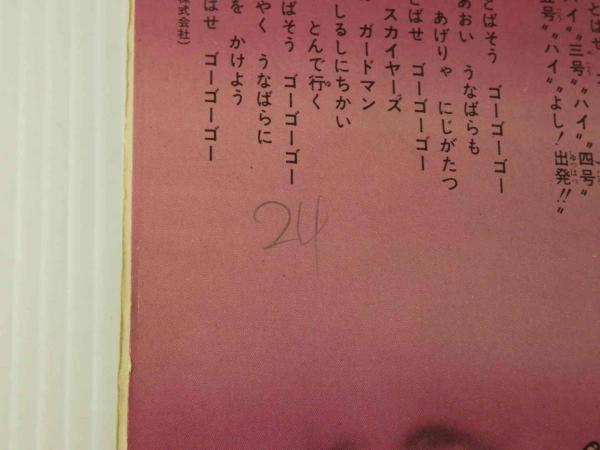 とばせ
ハイ〟〝三号〟〝ハイ〟〝四号〟
五号〟〝ハイ〟〝よし！出発!!〟
とばそう　ゴーゴーゴー
あおい　うなばらも
あげりゃ　にじがたつ
とばせ　ゴーゴーゴー
スカイヤーズ
ガードマン
しるしにちかい
とんで行く
とばそう　ゴーゴーゴー
やく　うなばらに
を　かけよう
ばせ　ゴーゴーゴー
株式会社）
24